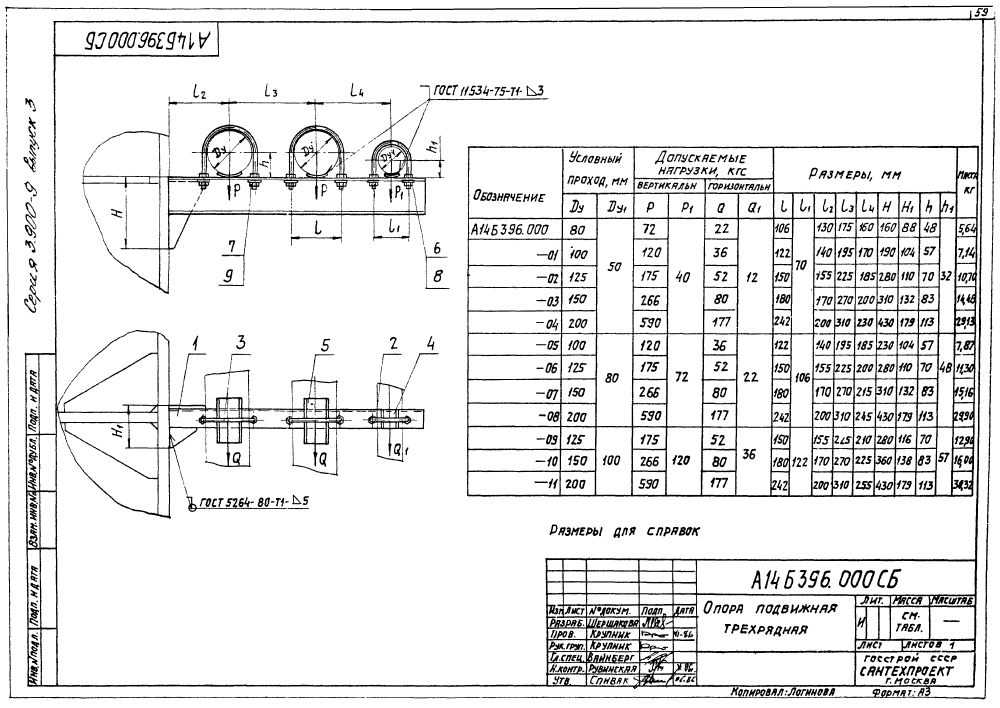 59
А14Б396.000СБ
Серия 3.900-9 выпуск 3
L2 L3 L4
ГОСТ 11534-75-Т1-△3
Dy Dy Dy1
h h1
H
P P P1
L L1
7 6
9 8
1 3 5 2 4
H1
Q Q Q1
ГОСТ 5264-80-Т1-△5
Обозначение Условный проход, мм Допускаемые нагрузки, кгс Размеры, мм Масса кг
вертикальн горизонтальн
Dy Dy1 P P1 Q Q1 l l1 l2 l3 l4 H H1 h h1
А14Б396.000 80 50 72 40 22 12 106 70 130 175 160 160 88 48 32 5,64
-01 100 120 36 122 140 195 170 190 104 57 7,14
-02 125 175 52 150 155 225 185 280 110 70 10,70
-03 150 266 80 180 170 270 200 310 132 83 14,48
-04 200 590 177 242 200 310 230 430 179 113 29,13
-05 100 80 120 72 36 22 122 106 140 195 185 230 104 57 48 7,87
-06 125 175 52 150 155 225 200 280 110 70 11,30
-07 150 266 80 180 170 270 215 310 132 83 15,16
-08 200 590 177 242 200 310 245 430 179 113 29,90
-09 125 100 175 120 52 36 150 122 155 245 210 280 116 70 57 12,90
-10 150 266 80 180 170 270 225 360 138 83 16,00
-11 200 590 177 242 200 310 255 430 179 113 30,32
Размеры для справок
А14Б396.000СБ
Изм. Лист № докум. Подп. Дата
Разраб. Шершакова
Пров. Крупник
Рук.груп. Крупник
Гл.спец. Вайнберг
Н.контр. Рувинская
Утв. Спивак
Опора подвижная
трехрядная
Лит. Масса Масштаб
И см. табл. —
Лист Листов 1
Госстрой СССР
Сантехпроект
г. Москва
Копировал: Логинова Формат: А3
Инв.№ подл. Подп. и дата Взам. инв.№ Инв.№ дубл. Подп. и дата